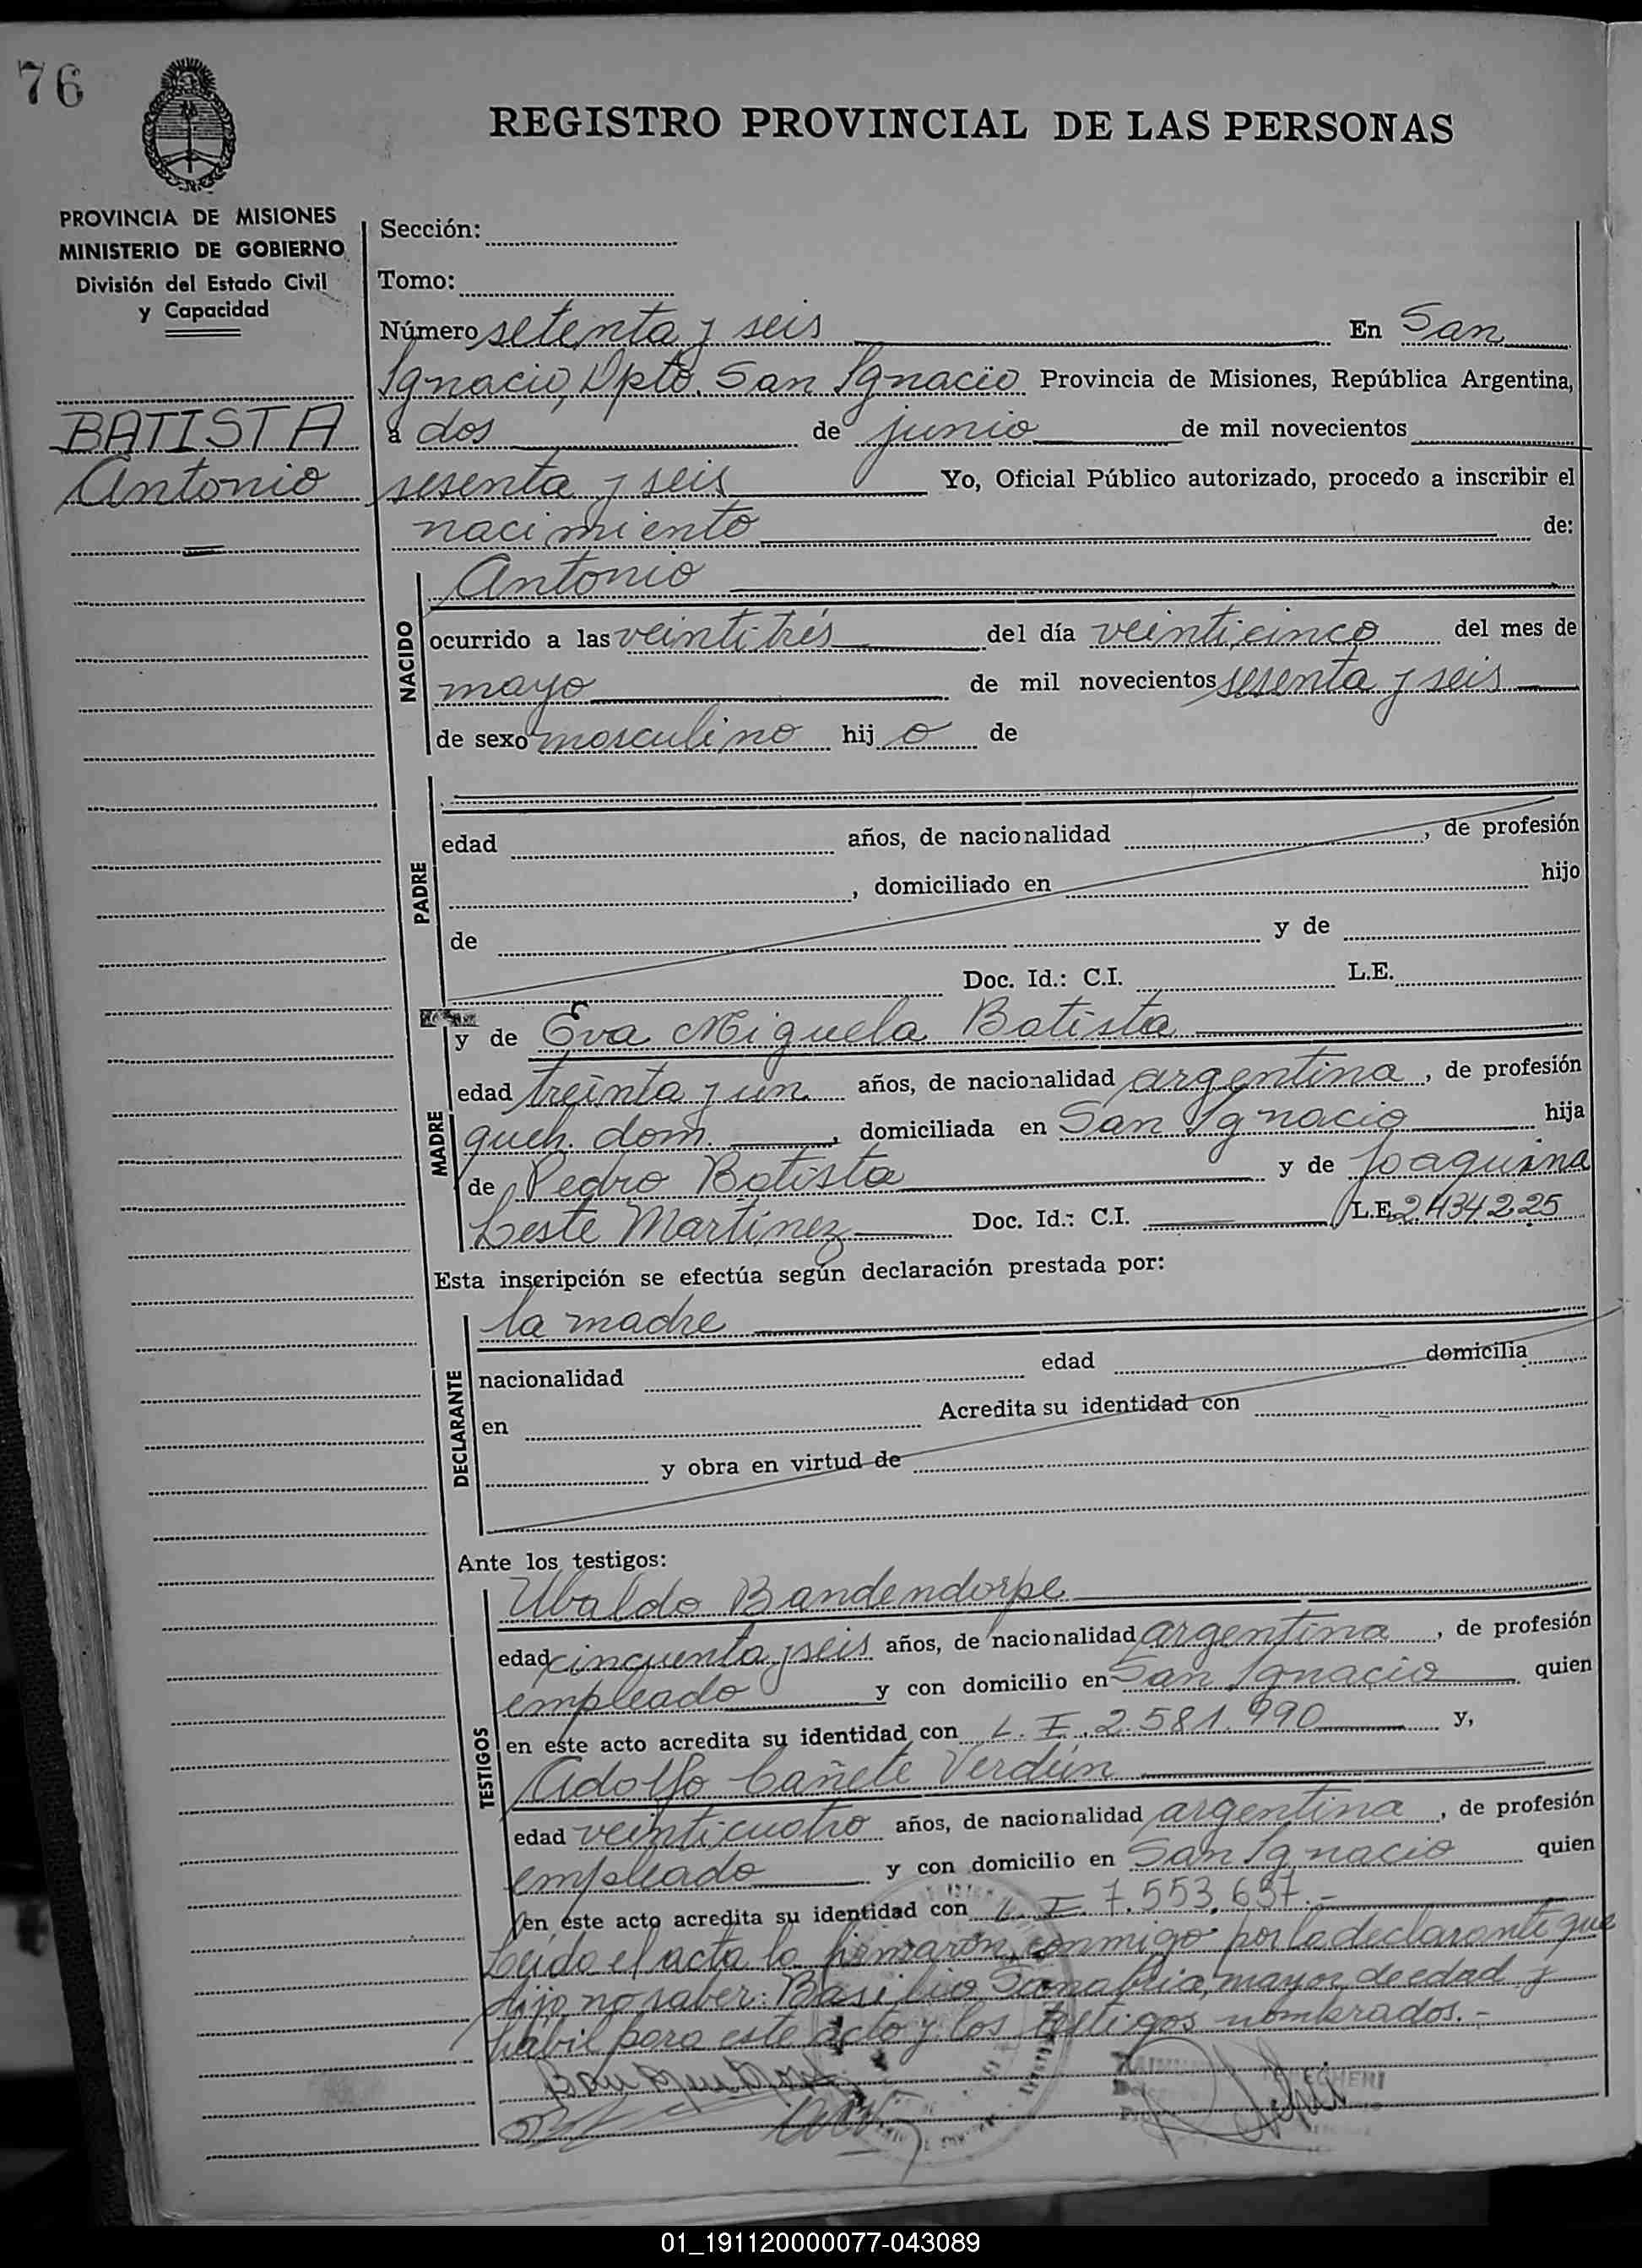 76
REGISTRO PROVINCIAL DE LAS PERSONAS
PROVINCIA DE MISIONES
MINISTERIO DE GOBIERNO
División del Estado Civil
y Capacidad
BATISTA
Antonio
Sección:
Tomo:
Número setenta y seis En San
Ignacio, Dpto. San Ignacio Provincia de Misiones, República Argentina,
a dos de junio de mil novecientos
sesenta y seis Yo, Oficial Público autorizado, procedo a inscribir el
nacimiento de:
NACIDO
Antonio
ocurrido a las veintitrés del día veinticinco del mes de
mayo de mil novecientos sesenta y seis
de sexo masculino hij o de
PADRE
edad años, de nacionalidad , de profesión
, domiciliado en hijo
de y de
Doc. Id.: C.I. L.E.
MADRE
y de Eva Miguela Batista
edad treinta y un años, de nacionalidad argentina, de profesión
queh. dom. , domiciliada en San Ignacio hija
de Pedro Batista y de Joaquina
Leste Martínez Doc. Id.: C.I. L.E. 2434225
Esta inscripción se efectúa según declaración prestada por:
DECLARANTE
la madre
nacionalidad edad domicilia
en Acredita su identidad con
y obra en virtud de
Ante los testigos:
TESTIGOS
Ubaldo Bandendorpe
edad cincuenta y seis años, de nacionalidad argentina, de profesión
empleado y con domicilio en San Ignacio quien
en este acto acredita su identidad con L. I. 2.581.990 y,
Adolfo Cañete Verdún
edad veinticuatro años, de nacionalidad argentina, de profesión
empleado y con domicilio en San Ignacio quien
en este acto acredita su identidad con L. I. 7.553.657.-
Leído el acta la firmaron conmigo por la declarante que
dijo no saber: Basilio Sanabria, mayor de edad y
habil para este acto y los testigos nombrados.-
01_191120000077-043089